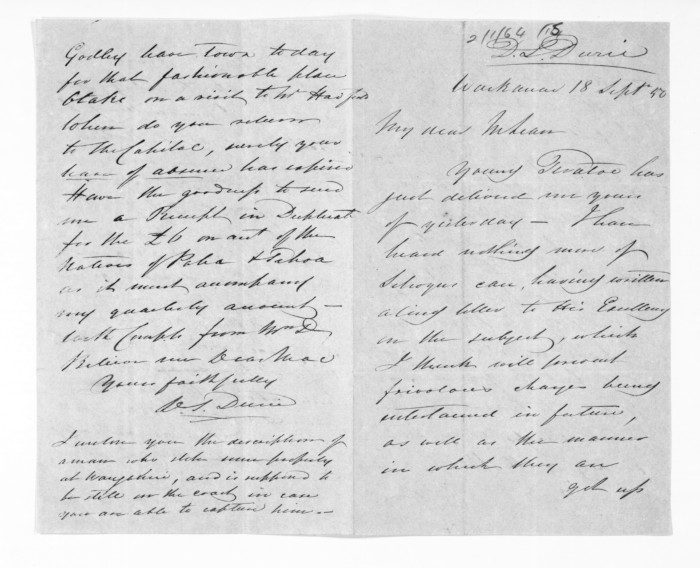 D. S. Durie
Waikanae 18 Sept 50
My dear McLean
Young has
just delivered me yours
of yesterday — I have
heard nothing more of
case, having written
a long letter to His Excellency
on the subject, which
I think will prevent
frivolous charges being
entertained in future,
as well as the manner
in which they are
got up
Godley have town today
for that fashionable place
Otaki on a visit to Mr Hadfield
When do you return
to the Capital, surely your
leave of absence has expired
Have the goodness to send
me a Receipt in Duplicate
for the £6 on acct of the
Natives of
as it must accompany
my quarterly account —
with Compts from Mrs D
Believe me Dear Mac
Yours faithfully
D. S. Durie
I enclose you the description of
a man who stole some property
at Wanganui, and is supposed to
be still on the coast in case
you are able to capture him —